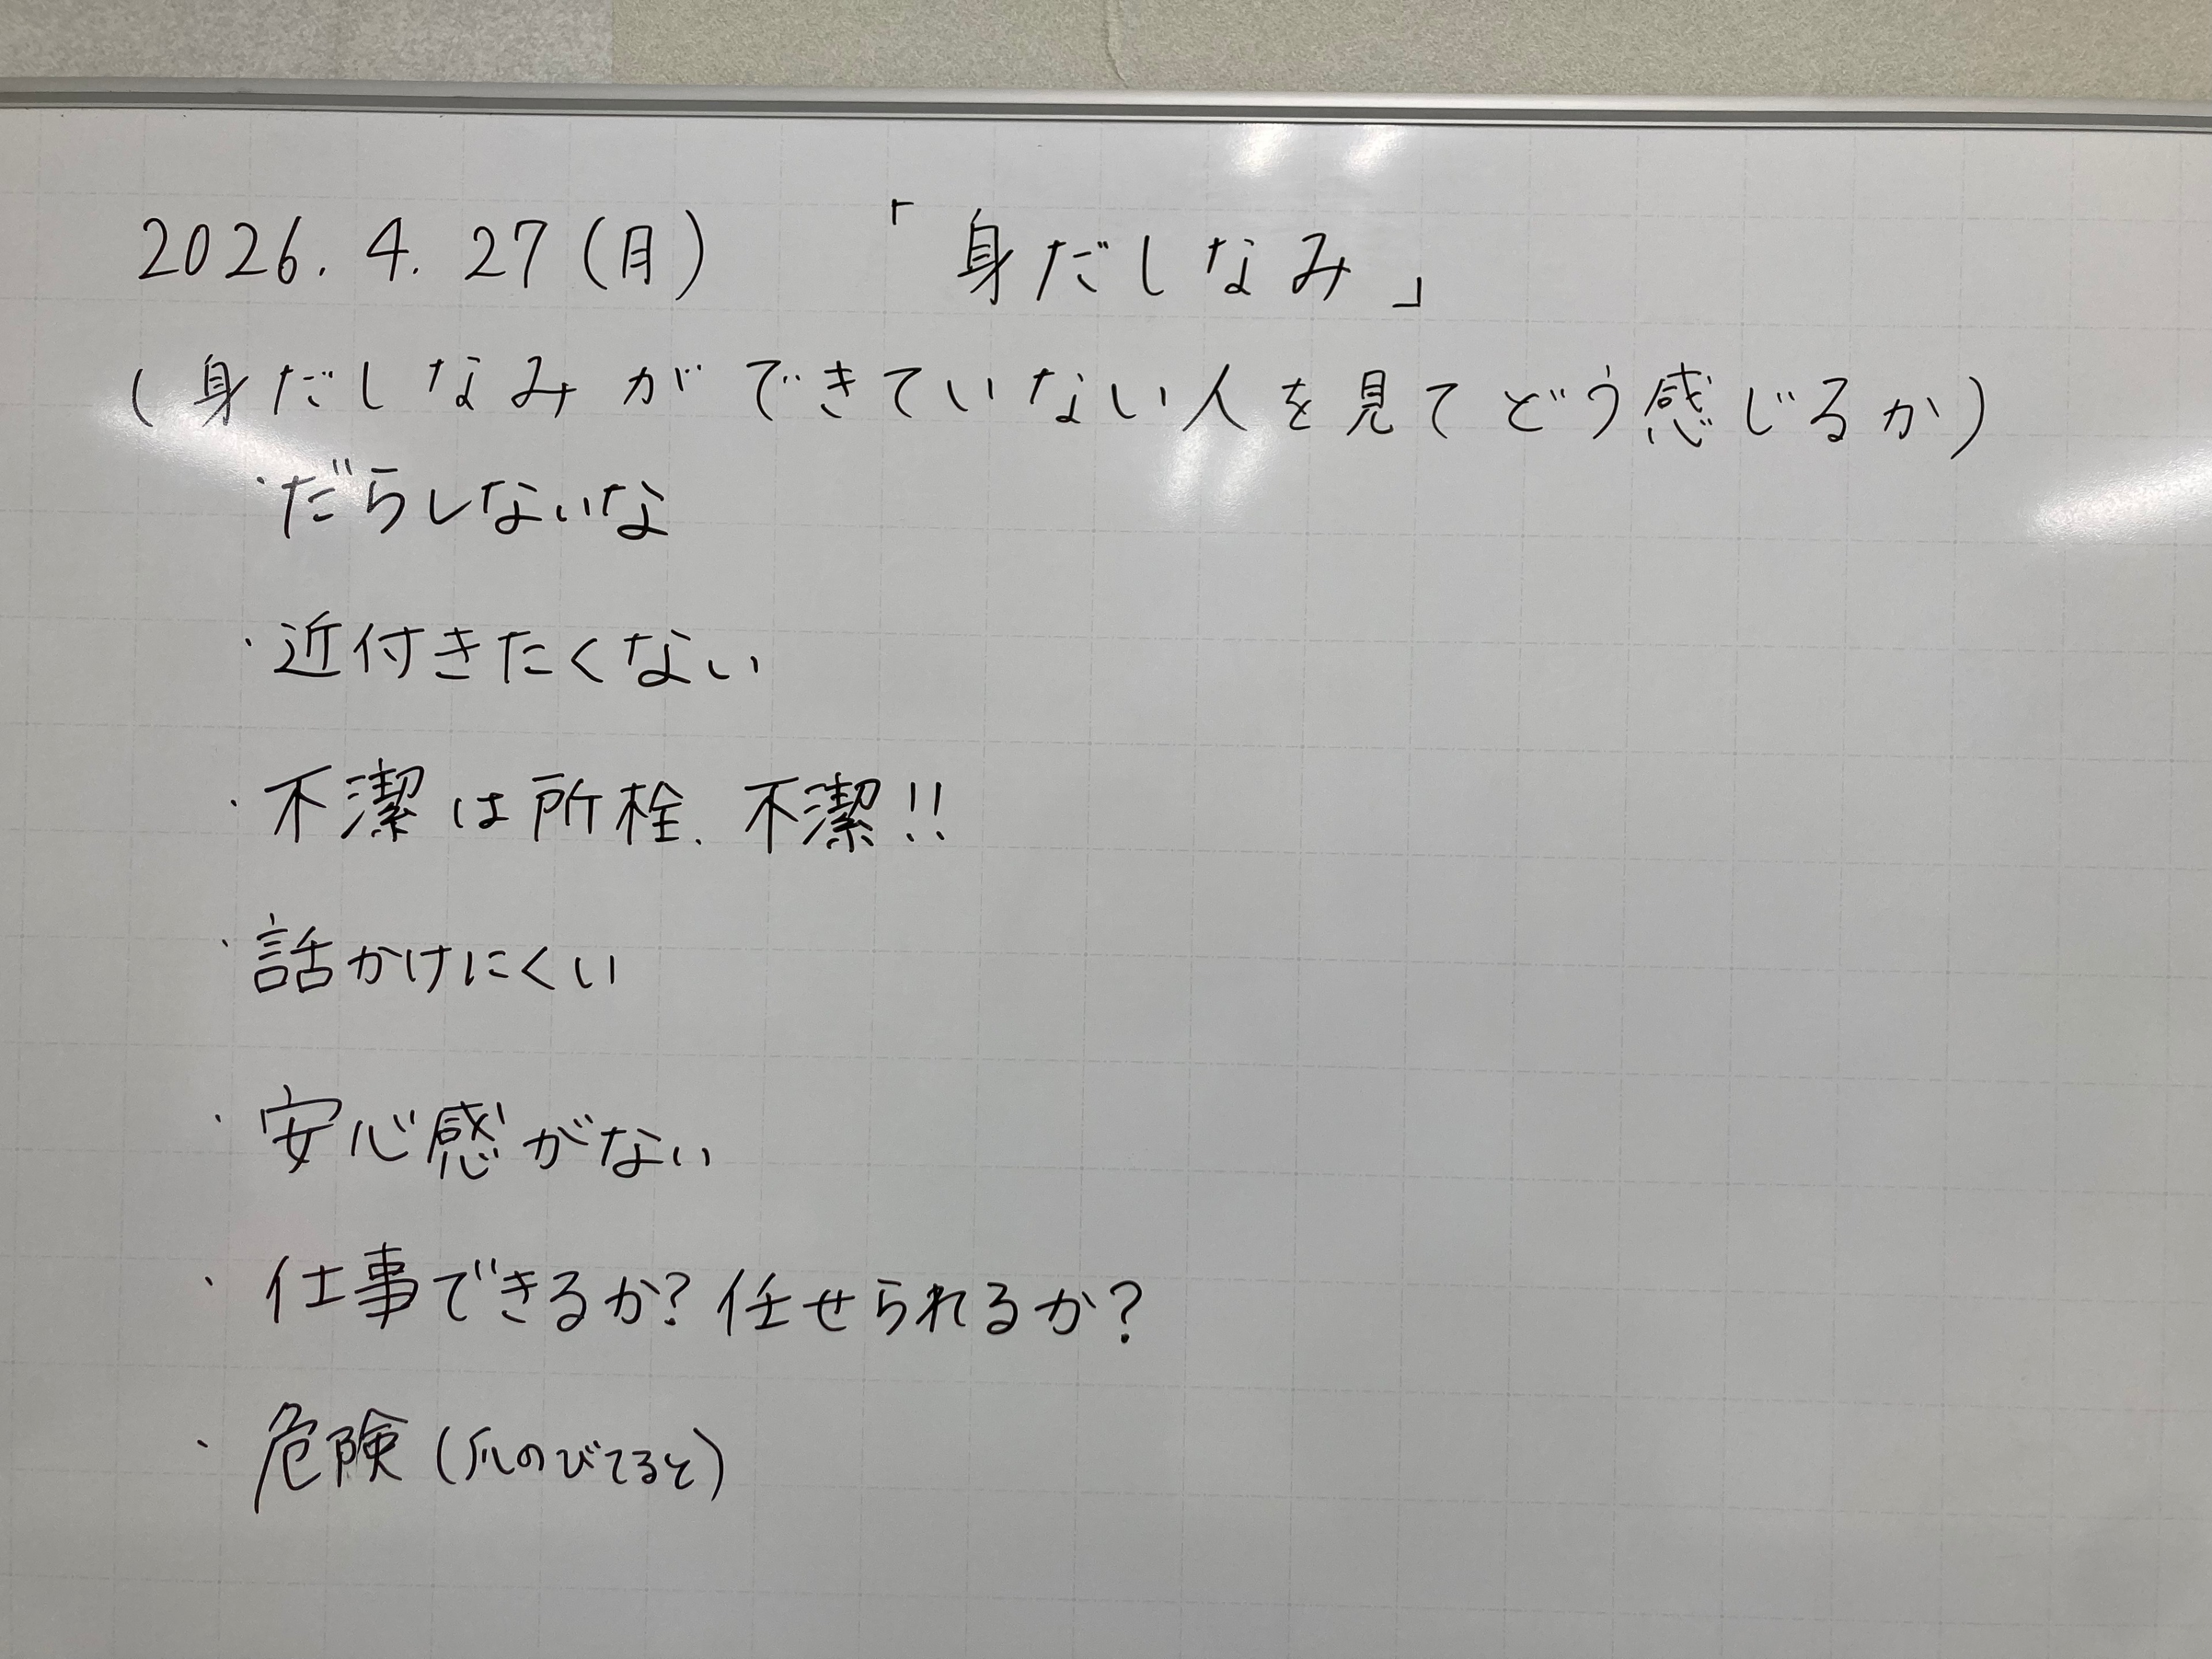 2026.4.27(月) 「身だしなみ」
(身だしなみができていない人を見てどう感じるか)
・だらしないな
・近付きたくない
・不潔は所栓、不潔!!
・話かけにくい
・安心感がない
・仕事できるか?任せられるか?
・危険(爪のびてると)